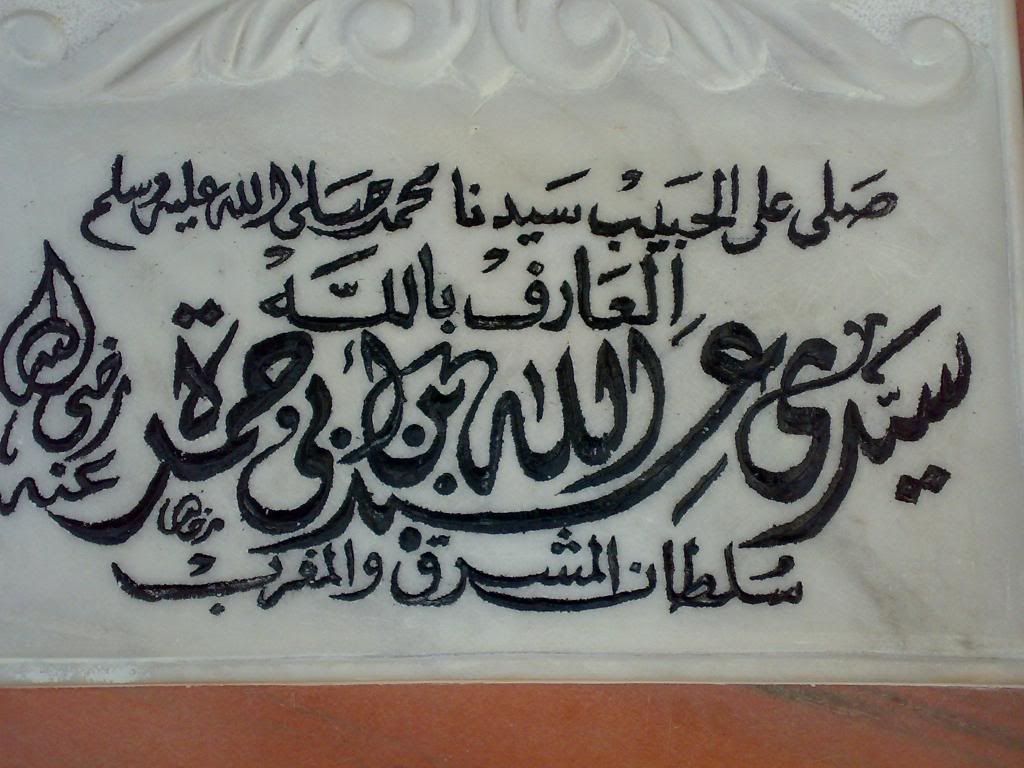 صلى على الحبيب سيدنا محمد صلى الله عليه وسلم
العارف بالله
سيدى عبد الله بن أبى حمزة رضى الله عنه
سلطان المشرق والمغرب